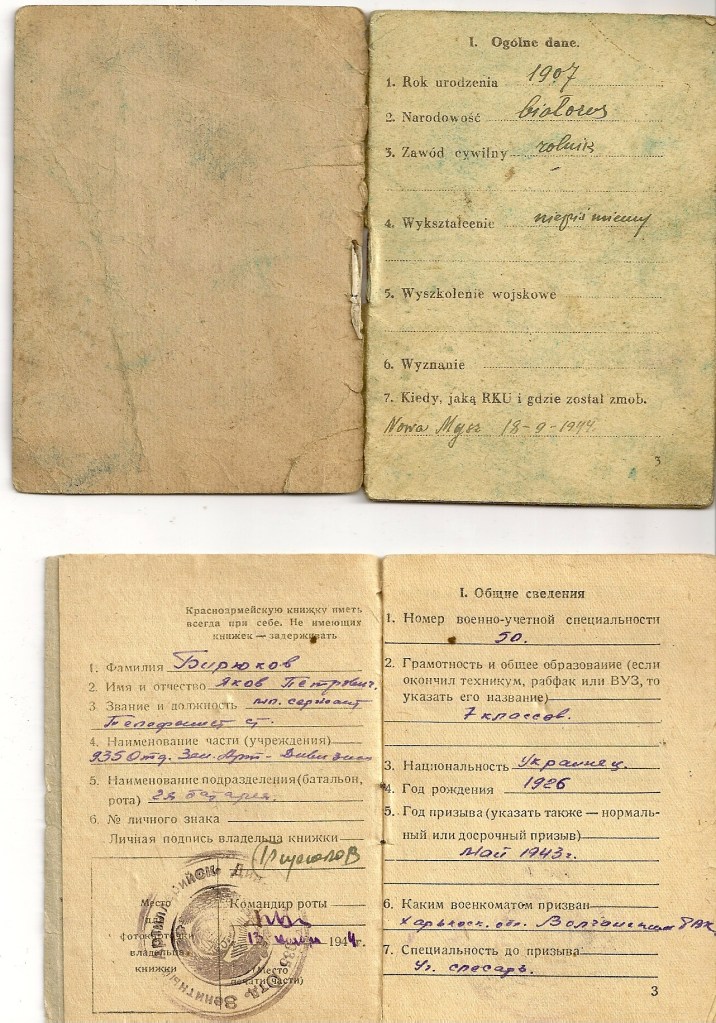 I. Ogólne dane.
1. Rok urodzenia 1907
2. Narodowość białorus
3. Zawód cywilny rolnik
4. Wykształcenie niepiśmienny
5. Wyszkolenie wojskowe
6. Wyznanie
7. Kiedy, jaką RKU i gdzie został zmob.
Nowa Mysz 18-9-1944
3
Красноармейскую книжку иметь
всегда при себе. Не имеющих
книжек — задерживать
1. Фамилия Бирюков
2. Имя и отчество Яков Петрович.
3 Звание и должность мл. сержант
Телефонист ст.
4. Наименование части (учреждения)
935 Отд. Зен. Арт- Дивизион
5. Наименование подразделения (батальон,
рота) 2я батарея.
6. № личного знака
Личная подпись владельца книжки
Место
фотокарточки
владельца
книжки
Командир роты
13 1944г.
(Место
печати части)
I. Общие сведения
1. Номер военно-учетной специальности
50.
2. Грамотность и общее образование (если
окончил техникум, рабфак или ВУЗ, то
указать его название)
7 классов.
3. Национальность Украинец.
4. Год рождения 1926
5. Год призыва (указать также — нормаль-
ный или досрочный призыв)
Май 1943г.
6. Каким военкоматом призван
Харьковск. обл. Волчанским РВК
7. Специальность до призыва
Уч. слесарь.
3